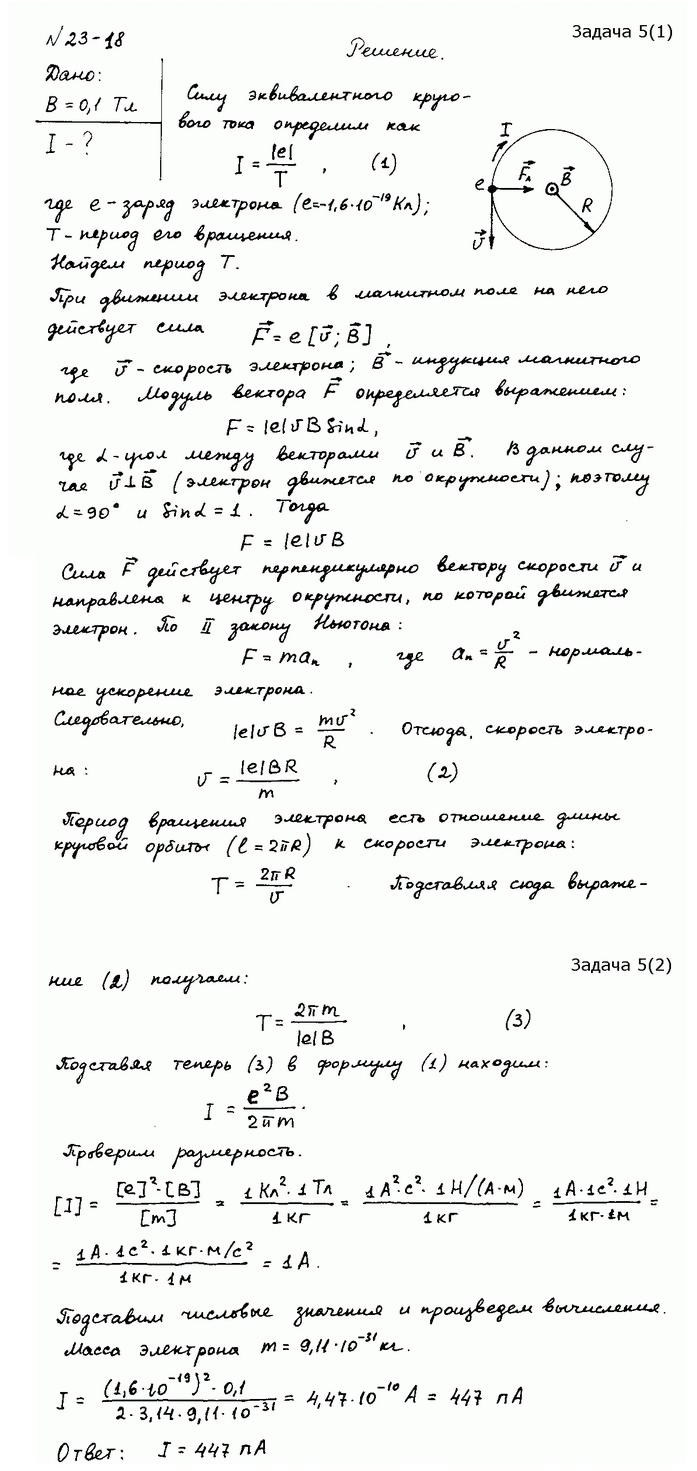 Задача 5(1)
№ 23-18
Решение.
Дано:
B = 0,1 Тл
I - ?
Силу эквивалентного круго-
вого тока определим как
I = |e|/T , (1)
I
e
F⃗л
B⃗
R
υ⃗
где e - заряд электрона (e=-1,6·10⁻¹⁹Кл);
T - период его вращения.
Найдем период T.
При движении электрона в магнитном поле на него
действует сила F⃗ = e [υ⃗; B⃗] ,
где υ⃗ - скорость электрона; B⃗ - индукция магнитного
поля. Модуль вектора F⃗ определяется выражением:
F = |e|υB Sinα,
где α - угол между векторами υ⃗ и B⃗. В данном слу-
чае υ⃗⊥B⃗ (электрон движется по окружности); поэтому
α=90° и Sinα = 1. Тогда
F = |e|υB
Сила F⃗ действует перпендикулярно вектору скорости υ⃗ и
направлена к центру окружности, по которой движется
электрон. По II закону Ньютона:
F = maₙ , где aₙ = υ²/R - нормаль-
ное ускорение электрона.
Следовательно, |e|υB = mυ²/R . Отсюда, скорость электро-
на: υ = |e|BR/m , (2)
Период вращения электрона есть отношение длины
круговой орбиты (ℓ = 2πR) к скорости электрона:
T = 2πR/υ . Подставляя сюда выраже-
Задача 5(2)
ние (2) получаем:
T = 2πm/|e|B , (3)
Подставяя теперь (3) в формулу (1) находим:
I = e²B/2πm .
Проверим размерность.
[I] = [e]²·[B]/[m] = 1 Кл²·1 Тл/1 кг = 1 А²·с²·1 Н/(А·м)/1 кг = 1 А·1с²·1Н/1 кг·1м =
= 1 А·1с²·1 кг·м/с²/1 кг·1м = 1 А.
Подставим числовые значения и произведем вычисления.
Масса электрона m = 9,11·10⁻³¹ кг.
I = (1,6·10⁻¹⁹)²·0,1/2·3,14·9,11·10⁻³¹ = 4,47·10⁻¹⁰ А = 447 пА
Ответ: I = 447 пА